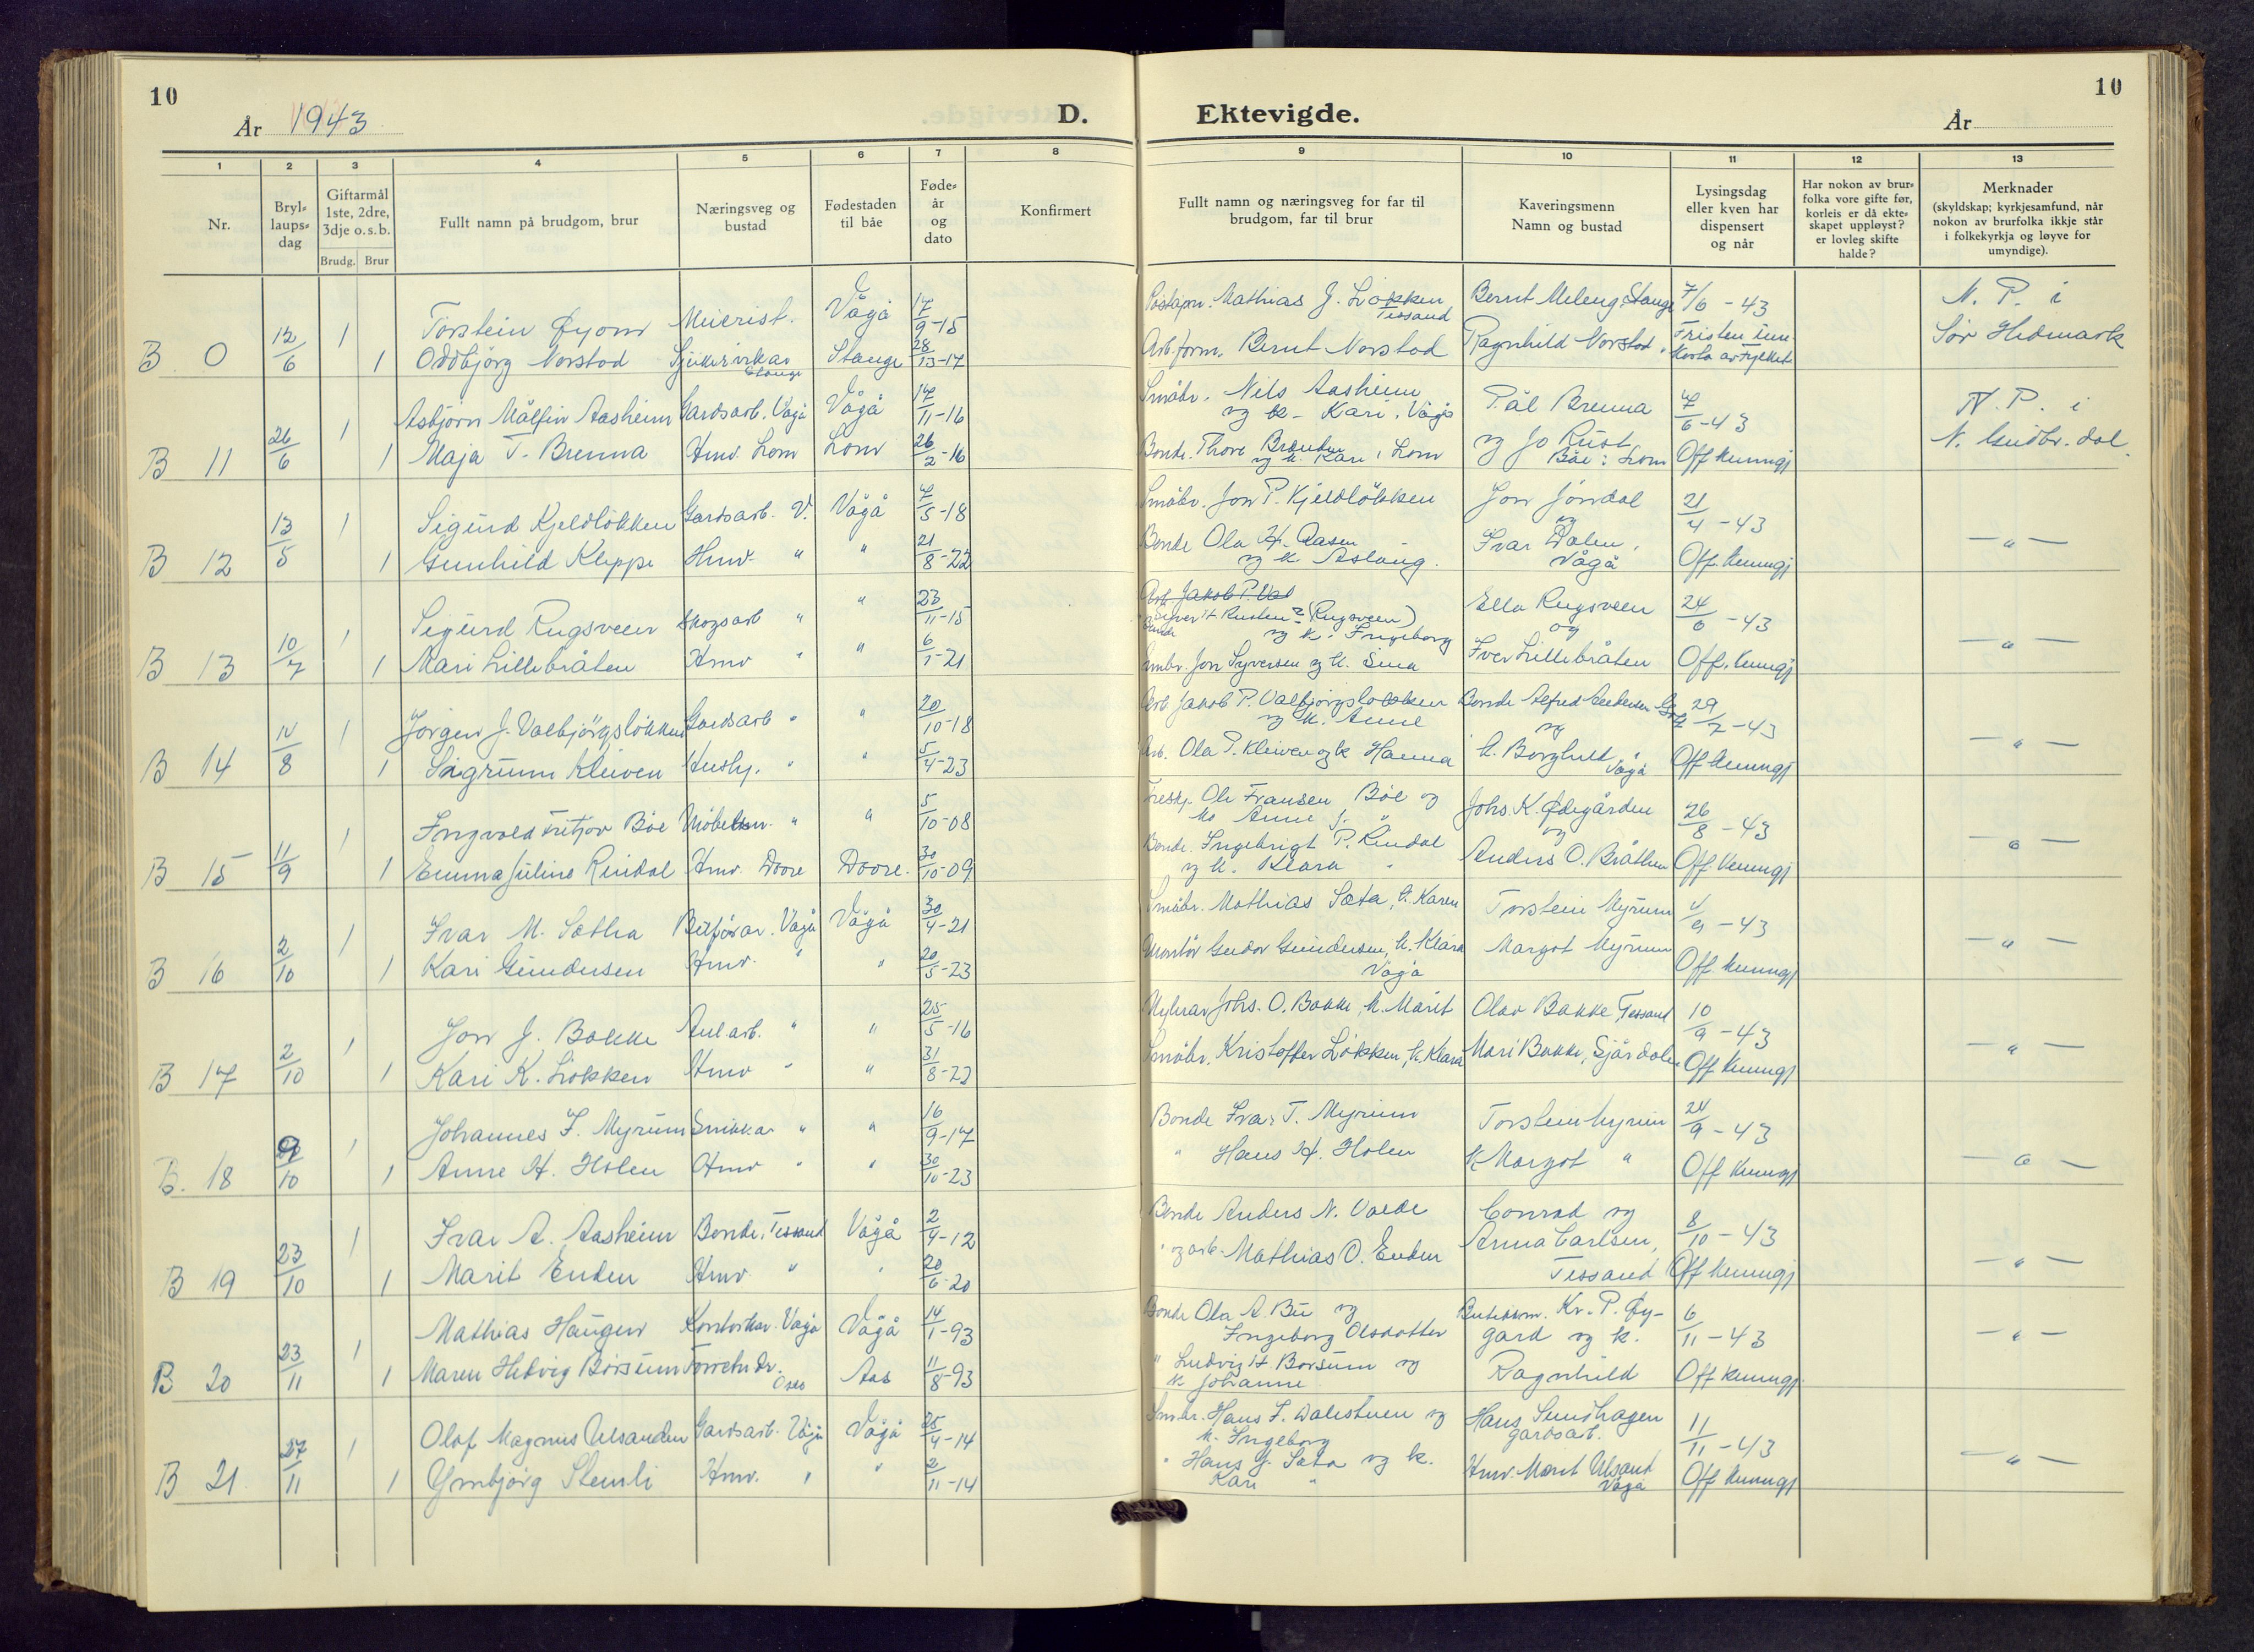 10
År 1943
D.
Ektevigde.
10
År
1 2 3 4 5 6 7 8 9 10 11 12 13
Nr.
Bryl-
laups-
dag
Giftarmål
1ste, 2dre,
3dje o.s.b.
Brudg. Brur
Fullt namn på brudgom, brur
Næringsveg og
bustad
Fødestaden
til båe
Føde-
år
og
dato
Konfirmert
Fullt namn og næringsveg for far til
brudgom, far til brur
Kaveringsmenn
Namn og bustad
Lysingsdag
eller kven har
dispensert
og når
Har nokon av brur-
folka vore gifte før,
korleis er då ekte-
skapet uppløyst?
er lovleg skifte
halde?
Merknader
(skyldskap; kyrkjesamfund, når
nokon av brurfolka ikkje står
i folkekyrkja og løyve for
umyndige).
1 Torstein Øyom Meierist. Vågå 17/9-15 Mathias J. Løkken Tessand Bernt Meleng, Stange 7/6-43 N. P. i
B 0 12/6 1 Oddbjörg Norstad Stange Stange 28/13-17 Arb.form. Bernt Norstad Ragnhild Norstad Sør Hedmark
1 Asbjörn Målfin Aasheim Gardsarb. Vågå Vågå 17/11-16 Småbr. Nils Aasheim og k. Kari, Vågå Pål Brenna 7/6-43 N. P. i
B 11 26/6 1 Maja T. Brenna Hmv. Lom Lom 26/2-16 Bonde. Thore og k. Kari, Lom og Jo Rust Båe i Lom Off kunngj N. Gudbr. dal
1 Sigurd Kjeldlökken Gardsarb. V. Vågå 7/5-18 Småbr. Jon P. Kjeldlökken Jon Jöndal 21/4-43
B 12 13/5 1 Gunhild Kleppe Hmv. " " 21/8-22 Bonde Ola H. Aasen og k. Aslaug. og Ivar Dalen, Vågå Off. kunngj — " —
1 Sigurd Rugsveen Skogsarb " " 23/11-15 Arb. Jakob P. Val (Rugsveen) og k. Ingeborg Ella Rugsveen og 24/6-43
B 13 10/7 1 Mari Lillebråten Hmv " " 6/1-21 Småbr. Jon Syversen og k. Sina Iver Lillebråten Off. kunngj — " —
1 Jörgen J. Valbjörgslökken Gardsarb " " 20/10-18 Arb Jakob P. Valbjörgslökken og k. Anne Bonde Alfred og 29/7-43
B 14 14/8 1 Sigrunn Kleiven Hushj. " " 5/4-23 Arb. Ola P. Kleiven og k Hanna k. Borghild Vågå Off kunngj — " —
1 Ingvald Fritjov Böe Möbelsn. " " 5/10-08 Ole Fransen Böe og Anne J. " Johs. K. Ødegården og 26/8-43
B 15 11/9 1 Emma Juline Rindal Hmv. Dovre Dovre. 30/10-09 Bonde. Ingebrigt P. Rindal og k. Klara " Anders O. Bråthen Off. kunngj — " —
1 Ivar M. Sætha Bilförar. Vågå Vågå 30/4-21 Småbr. Mathias Sæta, k. Karen Torstein Myrum 4/9-43
B 16 2/10 1 Kari Gundersen Hmv. " " 20/5-23 Montör Gudor Gundersen, k. Klara Vågå Margot Myrum Off kunngj — " —
1 Jon J. Bakke Anl.arb. " " 25/5-16 Johs. O. Bakke, k. Marit Olav Bakke, Tessand 10/9-43
B 17 2/10 1 Kari K. Lökken Hmv " " 31/8-22 Småbr. Kristoffer Lökken, k. Klara Mari Bakke, Sjårdalen Off kunngj — " —
1 Johannes I. Myrum Snikkar " " 16/9-17 Bonde Ivar T. Myrum Torstein Myrum 24/9-43
B. 18 9/10 1 Anne H. Holen Hmv " " 30/10-23 " Hans H. Holen k Margot " Off kunngj — " —
1 Ivar A. Aasheim Bonde, Tessand Vågå 2/4-12 Bonde Anders N. Valde Conrad og 8/10-43
B 19 23/10 1 Marit Enden Hmv. " " 20/6-20 " og arb. Mathias O. Enden Anna Carlsen, Tessand Off kunngj — " —
1 Mathias Haugen Kontorkar. Vågå Vågå 14/1-93 Bonde Ola A. Bu og Ingeborg Olsdotter Kr. P. Øygard og k. 6/11-43 — " —
B 20 23/11 1 Maren Hedvig Borsum Oslo Aas 11/8-93 " Ludvig H Borsum og k Johanne Ragnhild Off kunngj.
1 Olaf Magnus Ulsanden Gardsarb. Vågå Vågå 25/4-14 Småbr. Hans I. Dalestuen og k. Ingeborg Hans Sundhagen gardsarb. 11/11-43
B 21 27/11 1 Ymbjörg Stemli Hmv. " " 2/11-14 " Hans J. Sæta og k. Kari " Hmv. Marit Ulsand Vågå Off kunngj — " —